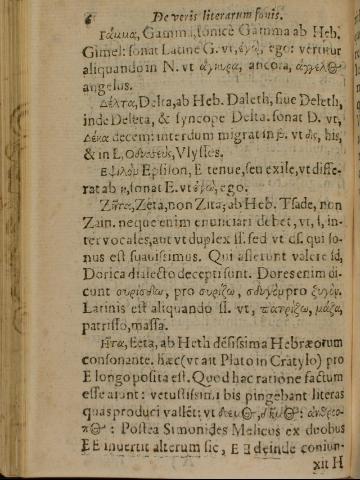 6 De veris literarum sonis.
Γάμμα, Gamma, Ionicè Gamma ab Heb.
Gimel: sonat Latinè G. vt, ἐγώ, ego: vertitur
aliquando in N. vt ἄγκυρα, ancora, ἄγγελος
angelus.
Δέλτα, Delta, ab Heb. Daleth, siue Deleth,
inde Deleta, & syncope Delta. sonat D. vt,
δέκα decem: interdum migrat in β. vt δις, bis,
& in L, Οδυσσεὺς, Vlysses.
Εψιλὸν Epsilon, E tenue, seu exile, vt diffe-
rat ab η, sonat E. vt ἐγώ, ego.
Ζῆτα, Zeta, non Zita; ab Heb. Tsade, non
Zain. neque enim enunciari debet, vt, s, in-
ter vocales, aut vt duplex ss. sed vt ds. qui so-
nus est suauissimus. Qui asserunt valere sd,
Dorica dialecto decepti sunt. Dores enim di-
cunt συρίσδω, pro συρίζω, σδυγὸν pro ζυγόν.
Latinis est aliquando ss. vt, πατρίζω, μάζα,
patrisso, massa.
Ητα, Eeta, ab Heth decisima Hebræorum
consonante. hæc (vt ait Plato in Cratylo) pro
E longo posita est. Quod hac ratione factum
esse aiunt: vetustissimi bis pingebant literas
quas produci vallēt; vt
πος: Postea Simonides Melicus ex duobus
EE inuertit alterum sic, E Ǝ deinde coniun-
xit H